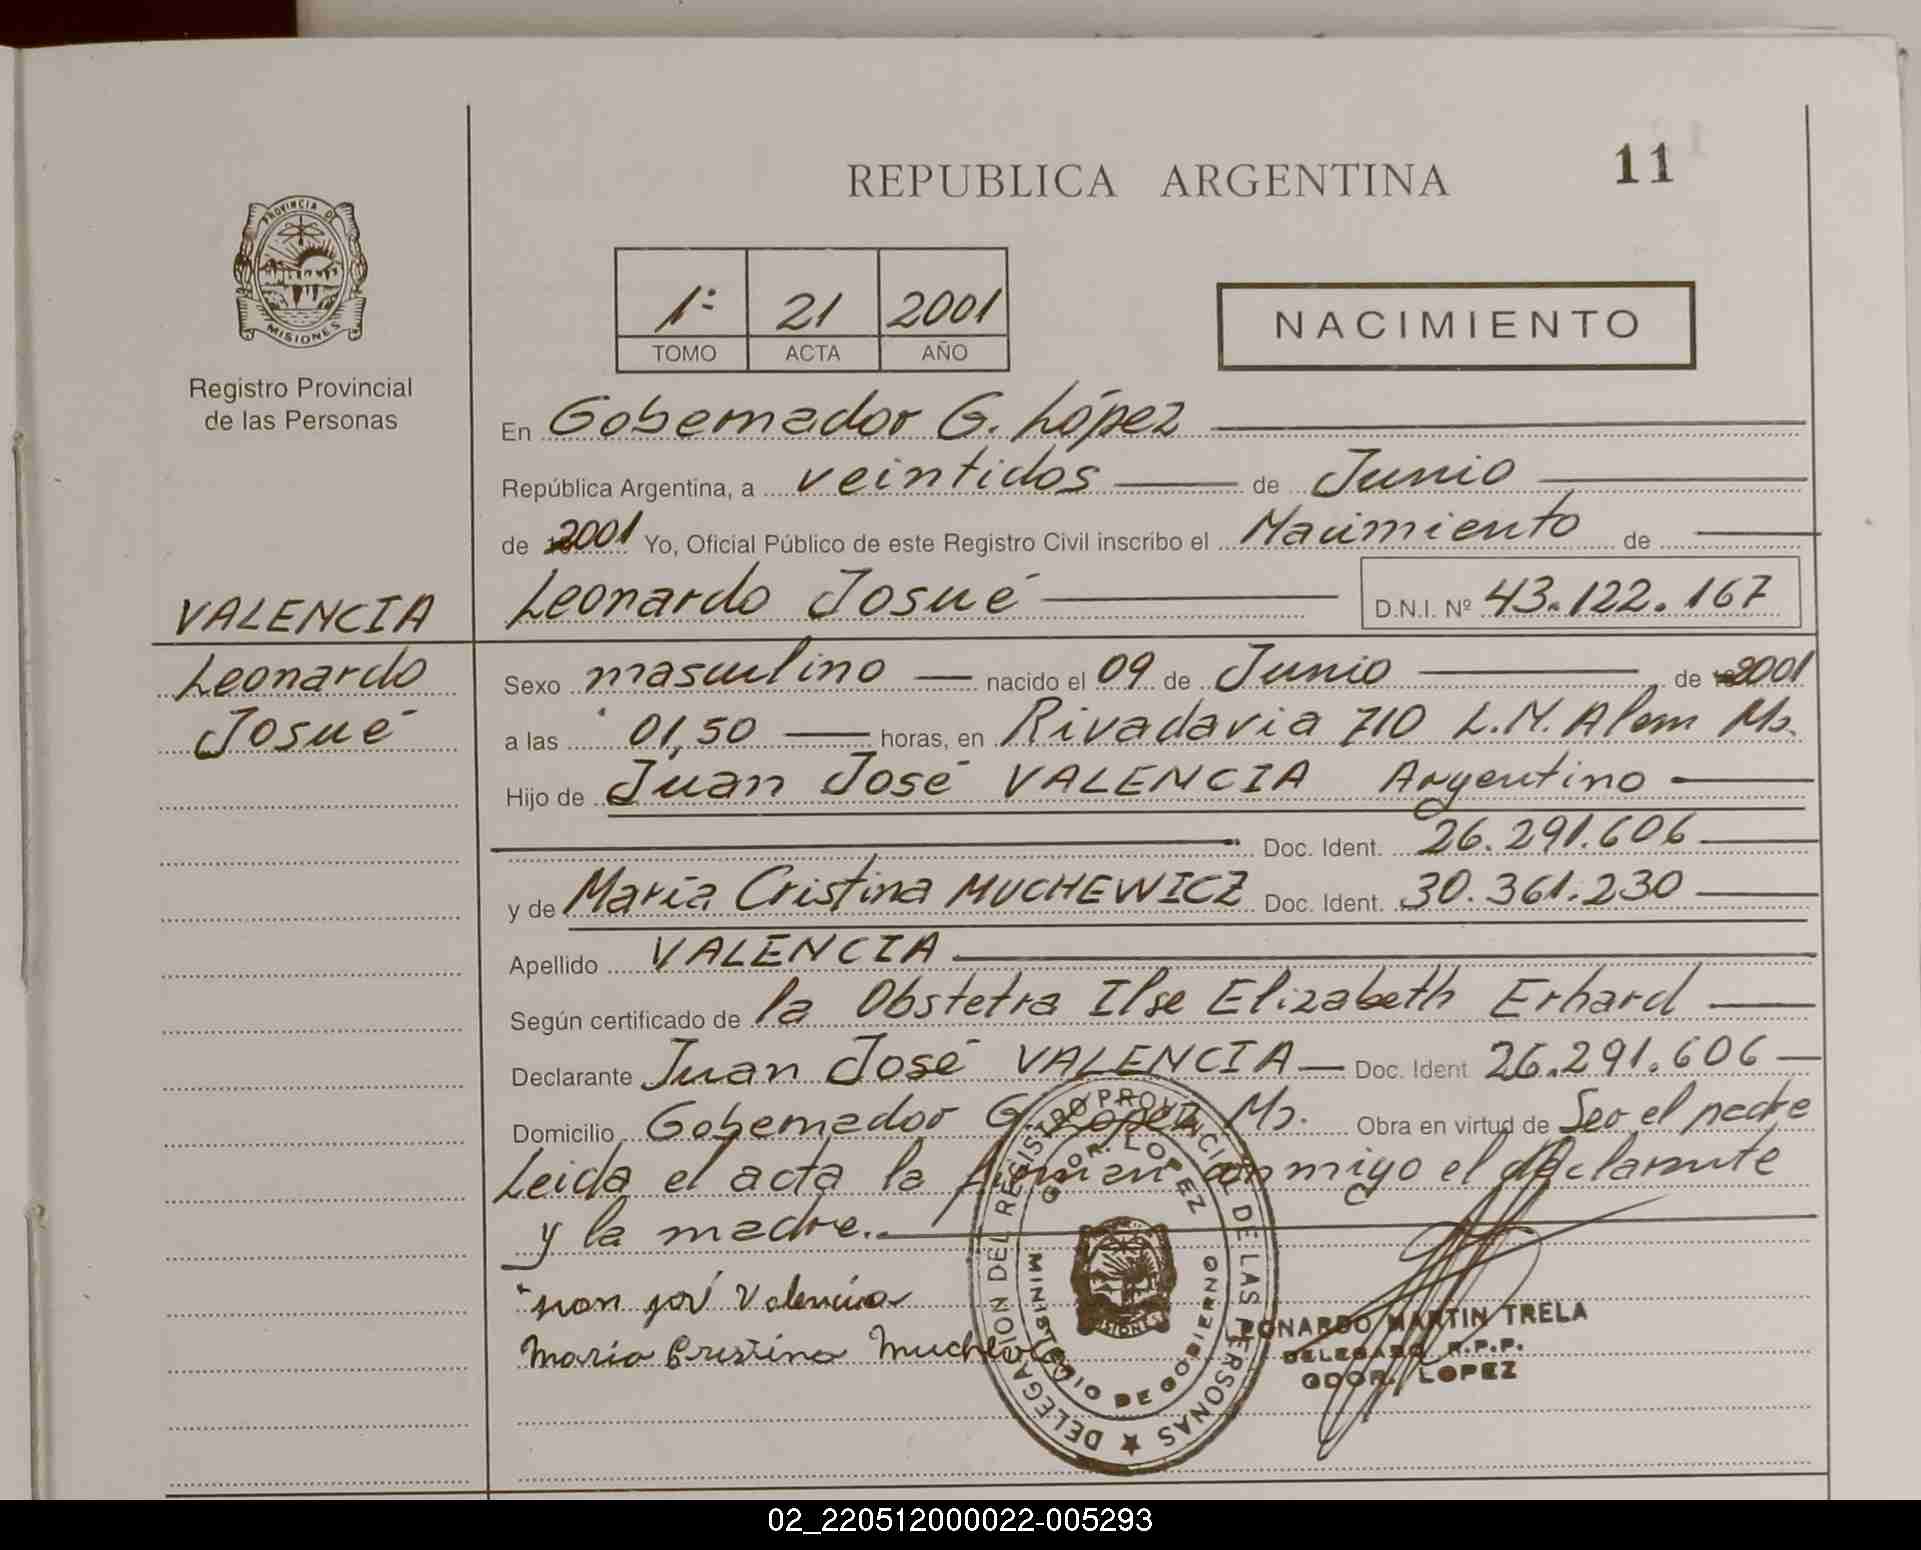 REPUBLICA ARGENTINA
11
PROVINCIA DE
MISIONES
Registro Provincial
de las Personas
1º 21 2001
TOMO ACTA AÑO
NACIMIENTO
En Gobernador G. López
República Argentina, a veintidos de Junio
de 2001 Yo, Oficial Público de este Registro Civil inscribo el Nacimiento de
VALENCIA
Leonardo
Josué
Leonardo Josué D.N.I. Nº 43.122.167
Sexo masculino nacido el 09 de Junio de 2001
a las 01,50 horas, en Rivadavia 710 L.N. Alem Ms.
Hijo de Juan José VALENCIA Argentino
Doc. Ident. 26.291.606
y de María Cristina MUCHEWICZ Doc. Ident. 30.361.230
Apellido VALENCIA
Según certificado de la Obstetra Ilse Elizabeth Erhard
Declarante Juan José VALENCIA Doc. Ident 26.291.606
Domicilio Gobernador G. López Ms. Obra en virtud de Ser el padre
Leida el acta la firman conmigo el declarante
y la madre.
Valencia
Maria Cristina
DELEGACION DEL REGISTRO PROVINCIAL DE LAS PERSONAS
GDOR. LOPEZ
MINISTERIO DE GOBIERNO
MISIONES
LEONARDO MARTIN TRELA
DELEGADO R.P.P.
GDOR. LOPEZ
02_220512000022-005293